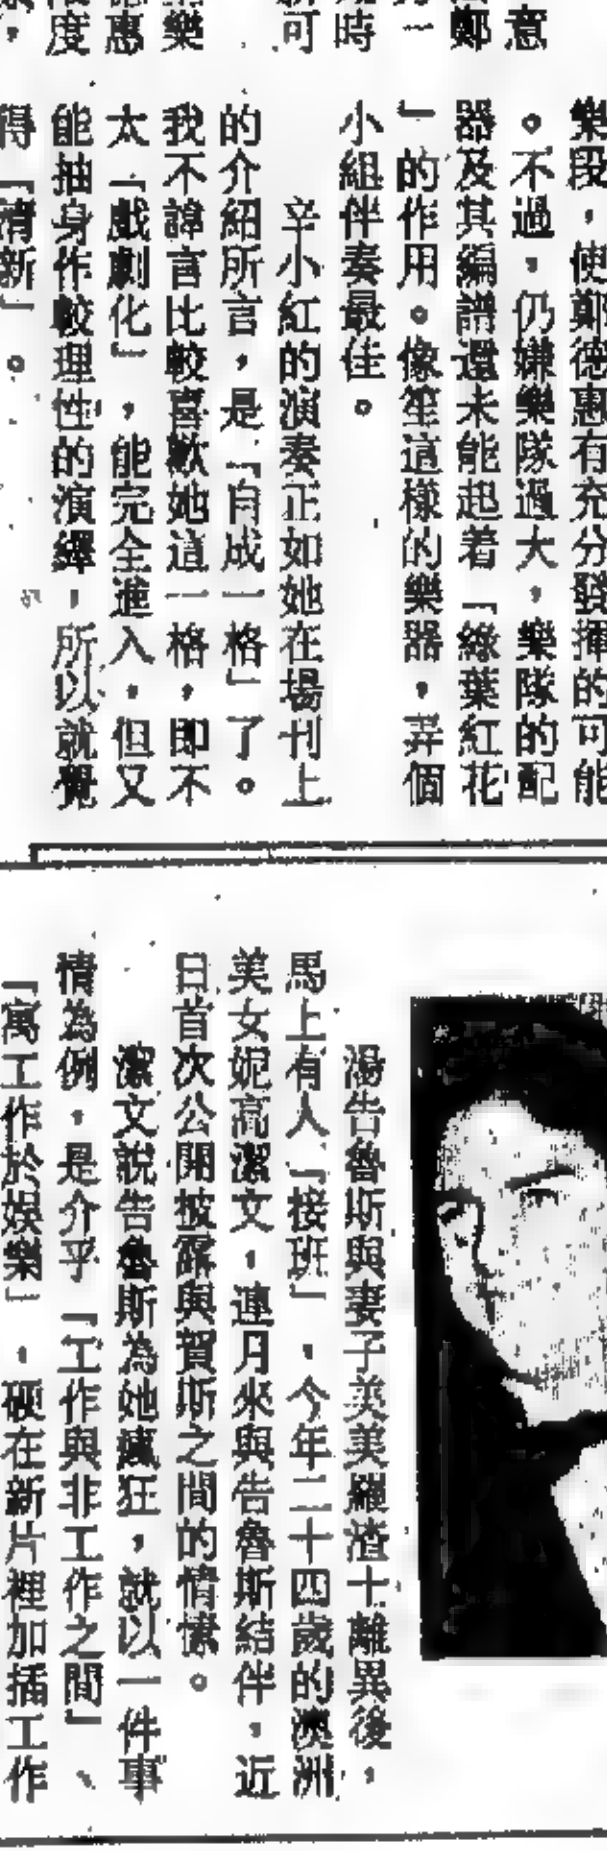 意
鄭
一
時
可
樂
惠
度
樂段，使鄭德惠有充分發揮的可能
。不過，仍嫌樂隊過大，樂隊的配
器及其編譜還未能起着「綠葉紅花
」的作用。像笙這樣的樂器，弄個
小組伴奏最佳。
辛小紅的演奏正如她在場刊上
的介紹所言，是「自成一格」了。
我不諱言比較喜歡她這一格，即不
太「戲劇化」，能完全進入，但又
能抽身作較理性的演繹，所以就覺
得「清新」。
湯告魯斯與妻子美美羅渣士離異後，
馬上有人「接班」，今年二十四歲的澳洲
美女妮高潔文，連月來與告魯斯結伴，近
日首次公開披露與賀斯之間的情愫。
潔文說告魯斯為她瘋狂，就以一件事
情為例，是介乎「工作與非工作之間」、
「寓工作於娛樂」，硬在新片裡加插工作